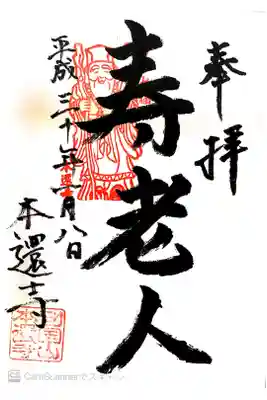 奉拝
寿老人
平成三十年一月八日
本還寺
CamScannerでスキャン